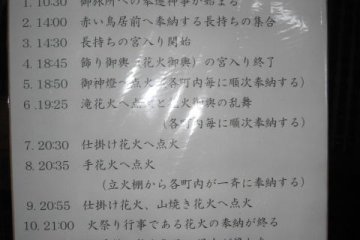 1. 10:30 御旅所への奉遷神事が始まる
2. 14:00 赤い鳥居前へ奉納する長持ちの集合
3. 14:30 長持ちの宮入り開始
4. 18:45 飾り御輿(花火御輿)の宮入り終了
5. 18:50 御神燈へ点火(各町内毎に順次奉納する)
6. 19:25 滝花火へ点火と 火御輿の乱舞
(各町内毎に順次奉納する)
7. 20:30 仕掛け花火へ点火
8. 20:35 手花火へ点火
(立火棚から各町内が一斉に奉納する)
9. 20:55 仕掛け花火、山焼き花火へ点火
10. 21:00 火祭り行事である花火の奉納が終る